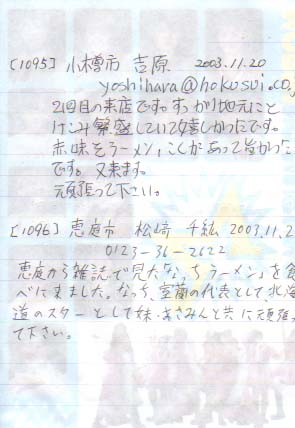 [1095] 小樽市 吉原 2003.11.20
yoshihara@hokusui.co.j
2回目の来店です。すっかり地元にと
けこみ繁盛していて嬉しかったです。
赤味そラーメン、こくがあって旨かった
です。又来ます。
頑張って下さい。
[1096] 恵庭市 松崎 千紘 2003.11.2
0123-36-2622
恵庭から雑誌で見た「なっちラーメン」を食
べに来ました。なっち、室蘭の代表として、北海
道のスターとして妹・あさみんと共に頑張っ
て下さい。